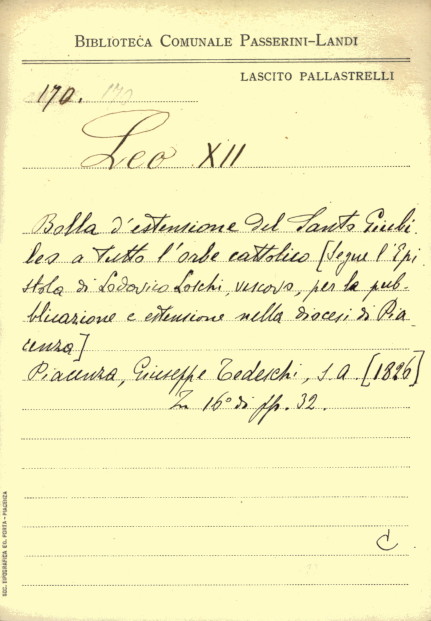 BIBLIOTECA COMUNALE PASSERINI-LANDI
LASCITO PALLASTRELLI
170. 170
Leo XII
Bolla d'estensione del Santo Giubi-
leo a tutto l'orbe cattolico [Segue l'Epi-
stola di Lodovico Loschi, vescovo, per la pub-
blicazione e estensione nella diocesi di Pia-
cenza]
Piacenza, Giuseppe Tedeschi, s.a. [1826]
In 16° di pp. 32.
C
SOC. TIPOGRAFICA ED. PORTA - PIACENZA